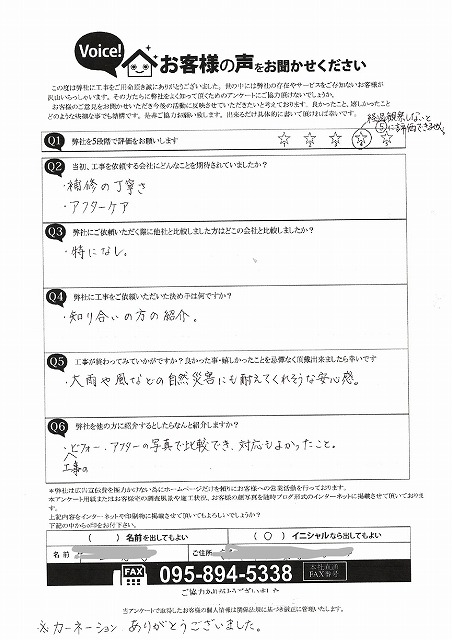 Voice!
お客様の声をお聞かせください
この度は弊社に工事をご用命頂き誠にありがとうございました。世の中には弊社の存在やサービスをご存知ないお客様が
沢山いらっしゃいます。その方たちに弊社をよく知って頂くためのアンケートにご協力頂けないでしょうか。
お客様のご意見をお聞かせいただき今後の活動に反映させていただきたいと考えております。良かったこと、嬉しかったこと
どのような些細な事でも結構です。是非ご協力お願い致します。出来るだけ具体的に書いて頂ければ幸いです。
経過観察しないと
⑤に評価できません
Q1 弊社を5段階で評価をお願いします ☆ ☆ ☆ ☆ ☆
Q2 当初、工事を依頼する会社にどんなことを期待されていましたか?
・補修の丁寧さ
・アフターケア
Q3 弊社にご依頼いただく際に他社と比較しました方はどこの会社と比較しましたか?
・特になし。
Q4 弊社に工事をご依頼いただいた決め手は何ですか?
・知り合いの方の紹介。
Q5 工事が終わってみていかがですか?良かった事・嬉しかったことを忌憚なく頂戴出来ましたら幸いです
・大雨や風などの自然災害にも耐えてくれそうな安心感。
Q6 弊社を他の方に紹介するとしたらなんと紹介しますか?
・ビフォー、アフターの写真で比較でき、対応もよかったこと。
工事の
*弊社は広告宣伝費を極力かけない為にホームページだけを頼りにお客様への営業活動を行っております。
本アンケート用紙またはお客様宅の調査風景や施工状況、お客様の顔写真を随時ブログ形式のインターネットに掲載させて頂いております。
上記内容をインターネットや印刷物に掲載させて頂いてもよろしいでしょうか?
下記の中から○印をお付け下さい。
( ) 名前を出してもよい ( ○ ) イニシャルなら出してもよい
名前 ご住所
FAX 095-894-5338 本社直通 FAX番号
ご協力ありがとうございました
当アンケートで取得したお客様の個人情報は関係法規に基づき厳正に管理いたします。
※カーネーション ありがとうございました。